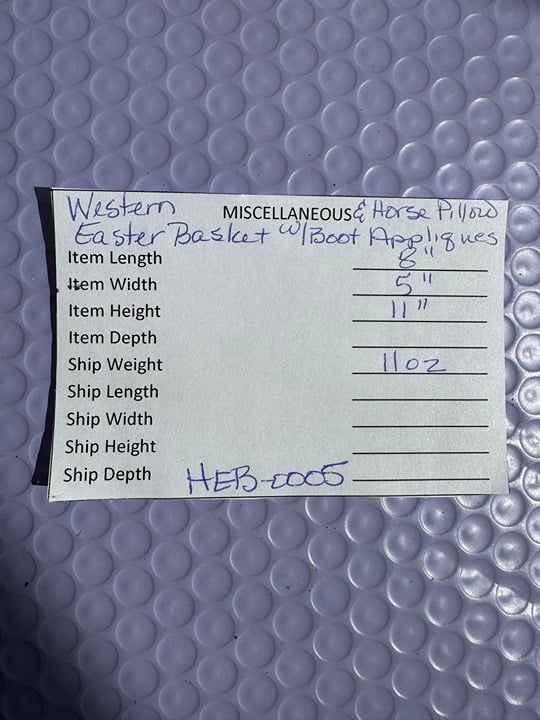 Western MISCELLANEOUS & Horse Pillow
Easter Basket w/Boot Appliques
Item Length 8"
Item Width 5"
Item Height 11"
Item Depth
Ship Weight 11oz
Ship Length
Ship Width
Ship Height
Ship Depth HEB-0005